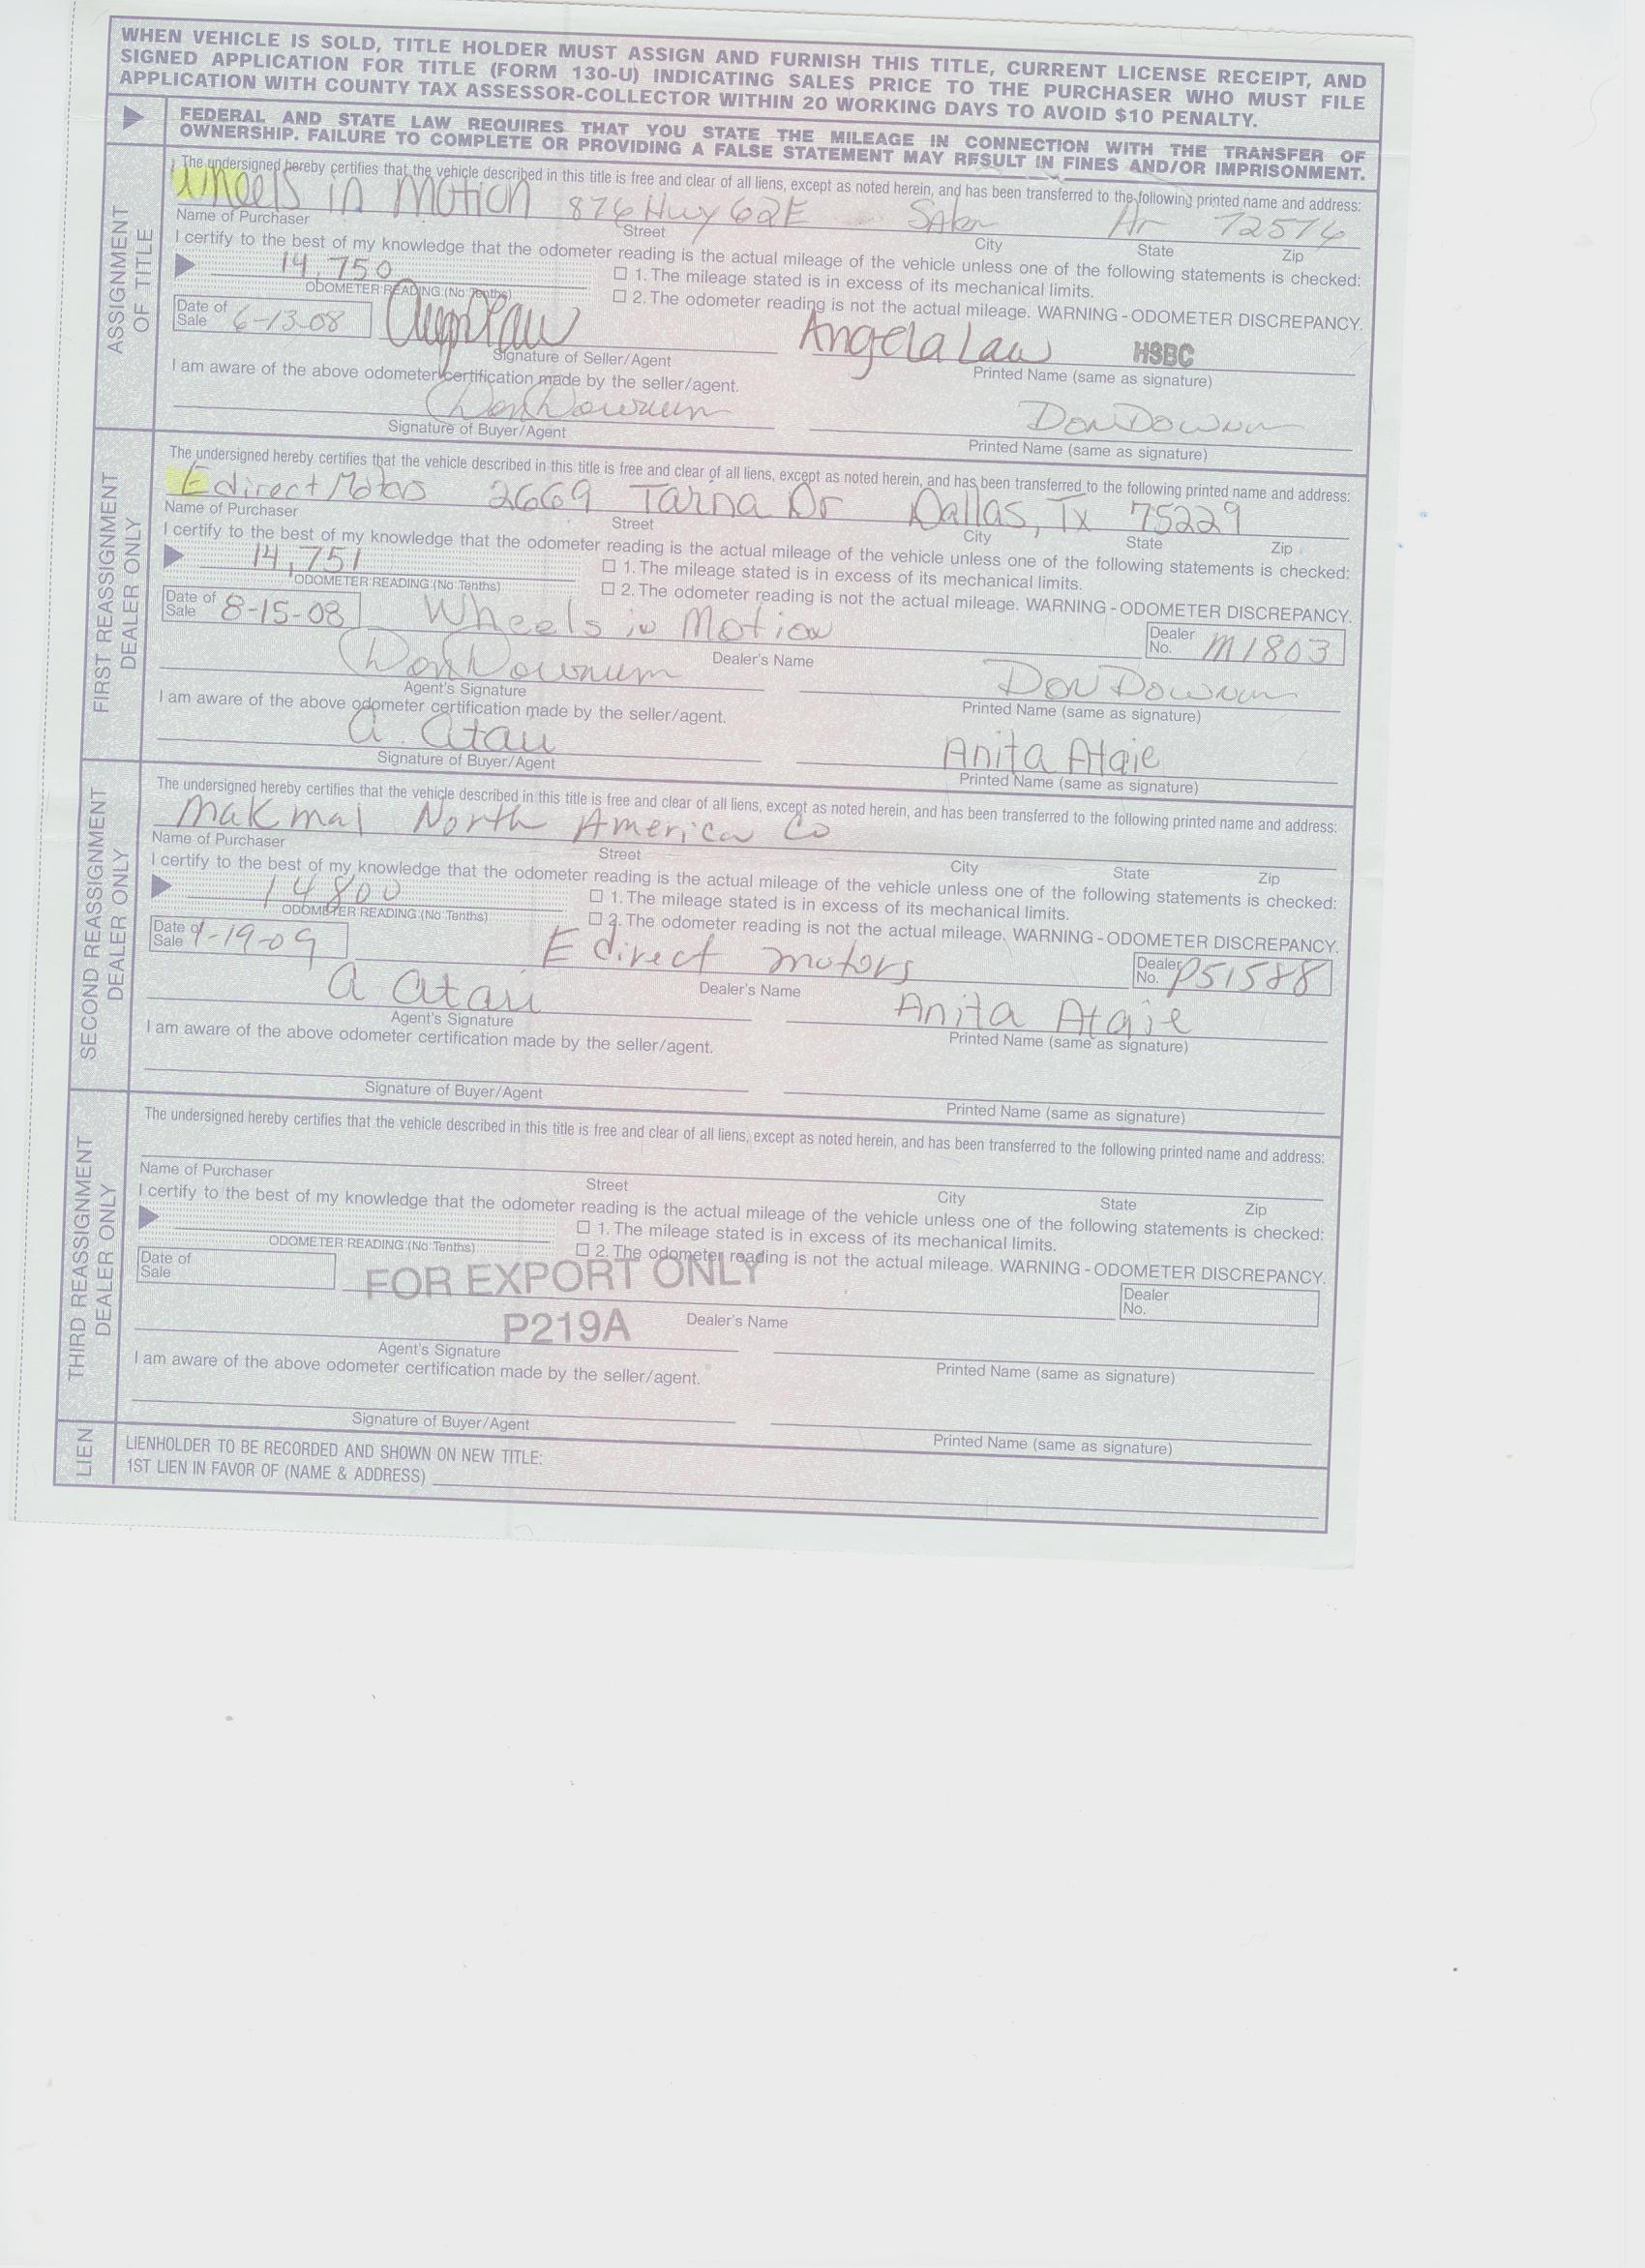 WHEN VEHICLE IS SOLD, TITLE HOLDER MUST ASSIGN AND FURNISH THIS TITLE, CURRENT LICENSE RECEIPT, AND
SIGNED APPLICATION FOR TITLE (FORM 130-U) INDICATING SALES PRICE TO THE PURCHASER WHO MUST FILE
APPLICATION WITH COUNTY TAX ASSESSOR-COLLECTOR WITHIN 20 WORKING DAYS TO AVOID $10 PENALTY.
FEDERAL AND STATE LAW REQUIRES THAT YOU STATE THE MILEAGE IN CONNECTION WITH THE TRANSFER OF
OWNERSHIP. FAILURE TO COMPLETE OR PROVIDING A FALSE STATEMENT MAY RESULT IN FINES AND/OR IMPRISONMENT.
ASSIGNMENT
OF TITLE
The undersigned hereby certifies that the vehicle described in this title is free and clear of all liens, except as noted herein, and has been transferred to the following printed name and address:
Wheels in Motion 876 Hwy 62E Ar
Name of Purchaser Street City State Zip
I certify to the best of my knowledge that the odometer reading is the actual mileage of the vehicle unless one of the following statements is checked:
14,750
ODOMETER READING (No Tenths)
1. The mileage stated is in excess of its mechanical limits.
2. The odometer reading is not the actual mileage. WARNING - ODOMETER DISCREPANCY.
Date of
Sale 6-13-08
Angela Law HSBC
Signature of Seller/Agent Printed Name (same as signature)
I am aware of the above odometer certification made by the seller/agent.
Don Downum Don Downum
Signature of Buyer/Agent Printed Name (same as signature)
FIRST REASSIGNMENT
DEALER ONLY
The undersigned hereby certifies that the vehicle described in this title is free and clear of all liens, except as noted herein, and has been transferred to the following printed name and address:
E direct Motors 2669 Tarna Dr Dallas, Tx 75229
Name of Purchaser Street City State Zip
I certify to the best of my knowledge that the odometer reading is the actual mileage of the vehicle unless one of the following statements is checked:
14,751
ODOMETER READING (No Tenths)
1. The mileage stated is in excess of its mechanical limits.
2. The odometer reading is not the actual mileage. WARNING - ODOMETER DISCREPANCY.
Date of
Sale 8-15-08 Wheels in Motion
Dealer's Name
Dealer
No. M1803
Don Downum Don Downum
Agent's Signature Printed Name (same as signature)
I am aware of the above odometer certification made by the seller/agent.
Anita Ataie
Signature of Buyer/Agent Printed Name (same as signature)
SECOND REASSIGNMENT
DEALER ONLY
The undersigned hereby certifies that the vehicle described in this title is free and clear of all liens, except as noted herein, and has been transferred to the following printed name and address:
Makmal North America Co
Name of Purchaser Street City State Zip
I certify to the best of my knowledge that the odometer reading is the actual mileage of the vehicle unless one of the following statements is checked:
14800
ODOMETER READING (No Tenths)
1. The mileage stated is in excess of its mechanical limits.
2. The odometer reading is not the actual mileage. WARNING - ODOMETER DISCREPANCY.
Date of
Sale 1-19-09 E direct motors
Dealer's Name
Dealer
No. P51588
Anita Ataie
Agent's Signature Printed Name (same as signature)
I am aware of the above odometer certification made by the seller/agent.
Signature of Buyer/Agent Printed Name (same as signature)
THIRD REASSIGNMENT
DEALER ONLY
The undersigned hereby certifies that the vehicle described in this title is free and clear of all liens, except as noted herein, and has been transferred to the following printed name and address:
Name of Purchaser Street City State Zip
I certify to the best of my knowledge that the odometer reading is the actual mileage of the vehicle unless one of the following statements is checked:
ODOMETER READING (No Tenths)
1. The mileage stated is in excess of its mechanical limits.
2. The odometer reading is not the actual mileage. WARNING - ODOMETER DISCREPANCY.
Date of
Sale
FOR EXPORT ONLY
Dealer
No.
P219A Dealer's Name
Agent's Signature Printed Name (same as signature)
I am aware of the above odometer certification made by the seller/agent.
Signature of Buyer/Agent Printed Name (same as signature)
LIEN
LIENHOLDER TO BE RECORDED AND SHOWN ON NEW TITLE:
1ST LIEN IN FAVOR OF (NAME & ADDRESS)